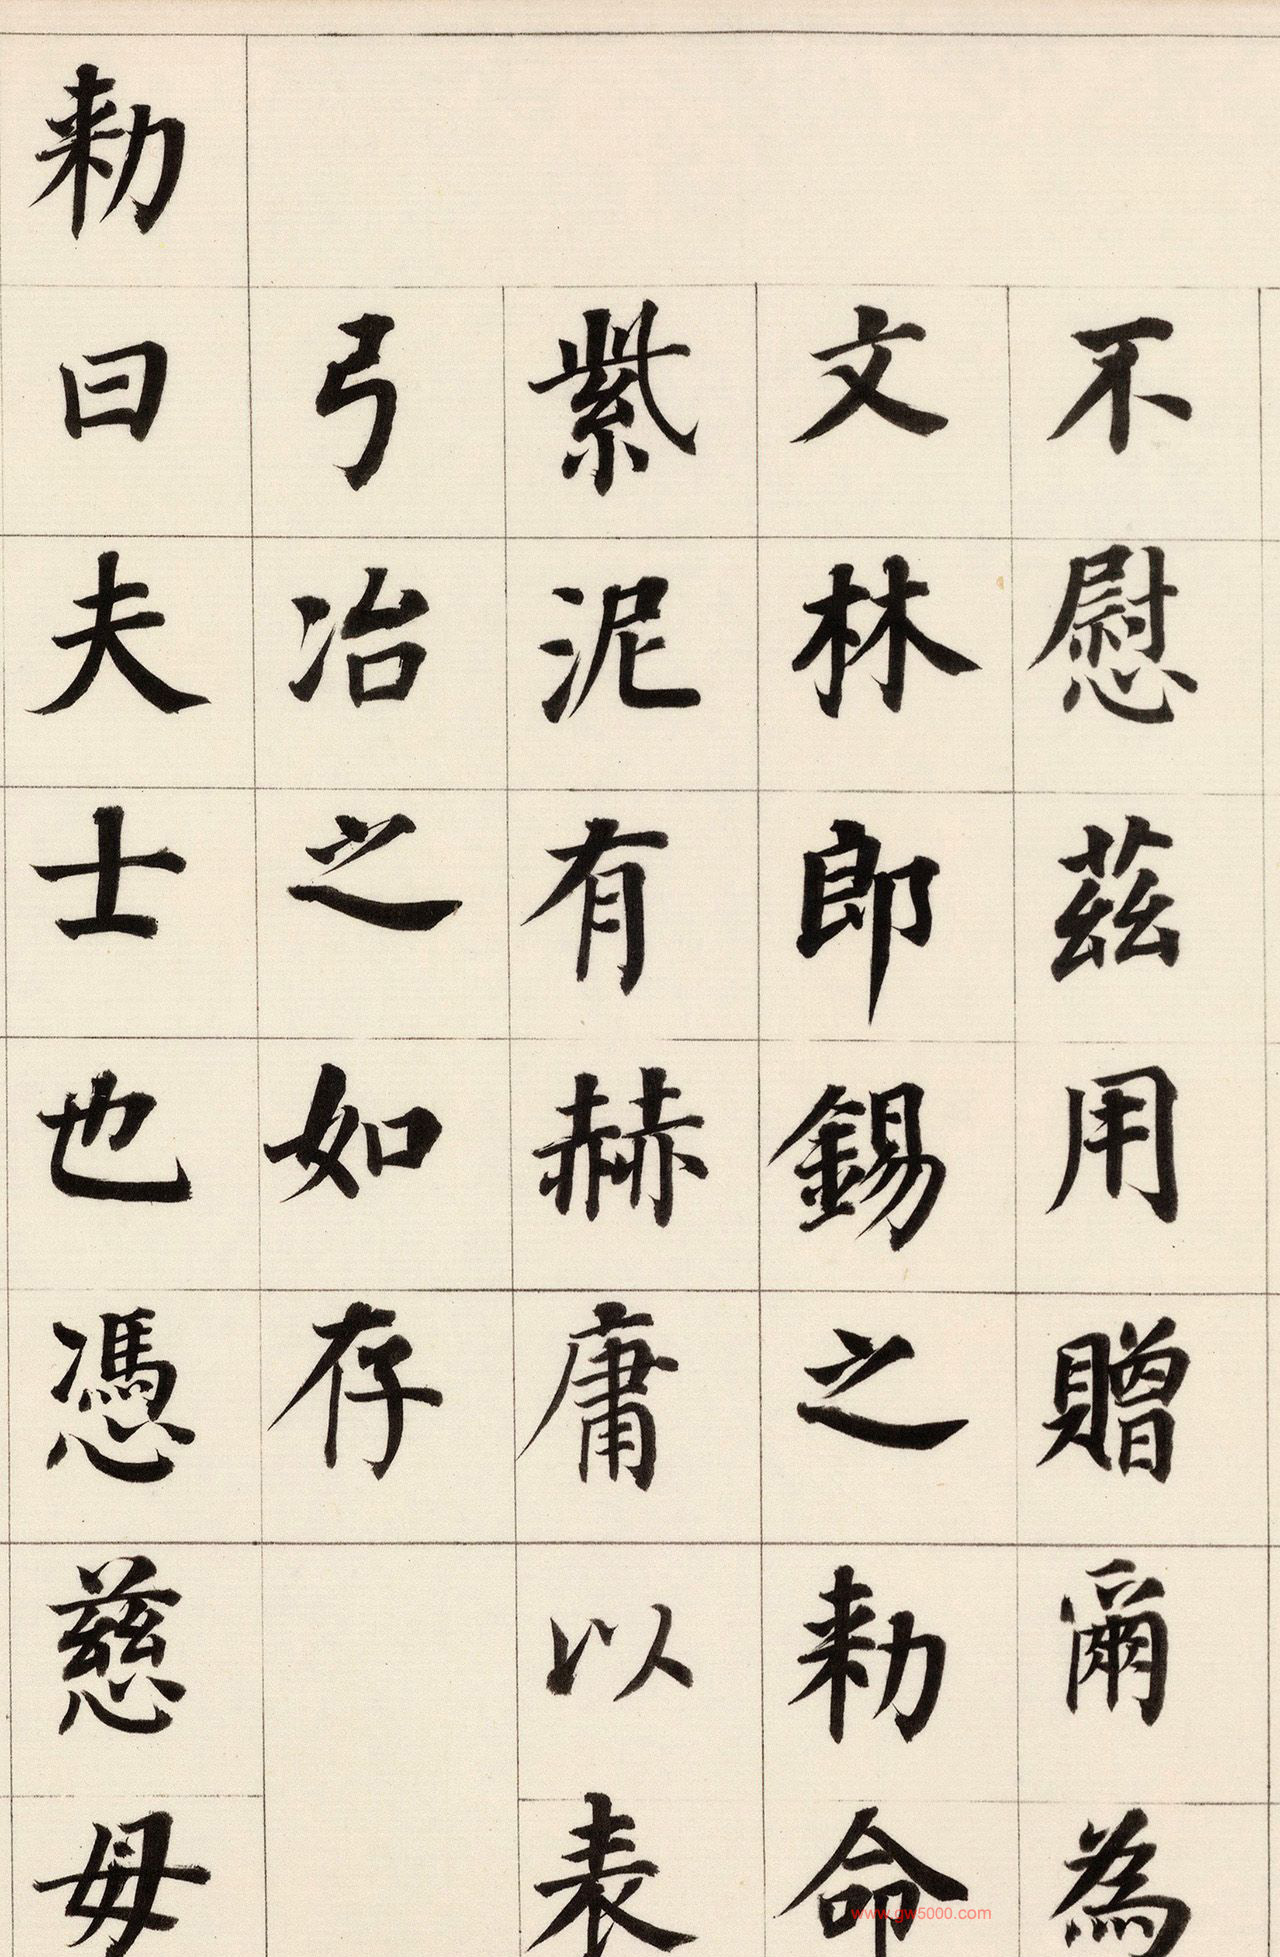 不慰茲用贈爾為
文林郎錫之勑命
紫泥有赫庸以表
弓冶之如存
勑曰夫士也憑慈母
www.gw5000.com